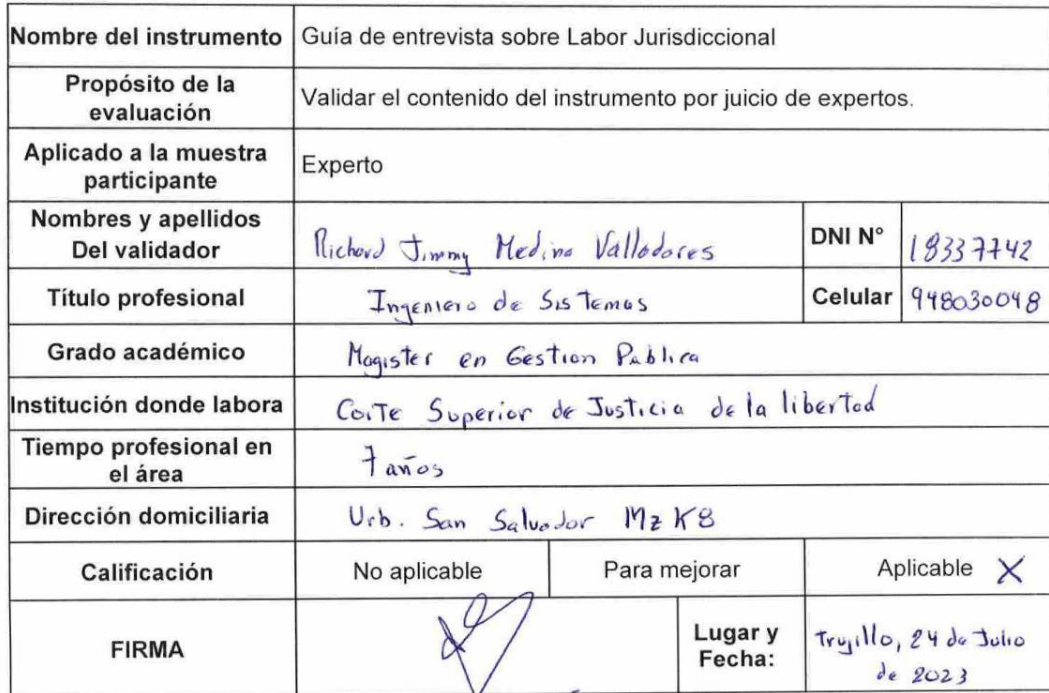 Nombre del instrumento Guía de entrevista sobre Labor Jurisdiccional
Propósito de la
evaluación
Validar el contenido del instrumento por juicio de expertos.
Aplicado a la muestra
participante
Experto
Nombres y apellidos
Del validador
Richard Jimmy Medina Valladares
DNI N° 18337742
Título profesional Ingeniero de Sistemas Celular 948030048
Grado académico Magister en Gestion Publica
Institución donde labora Corte Superior de Justicia de la libertad
Tiempo profesional en
el área
7 años
Dirección domiciliaria Urb. San Salvador Mz K8
Calificación No aplicable Para mejorar Aplicable X
FIRMA
Lugar y
Fecha:
Trujillo, 24 de Julio
de 2023